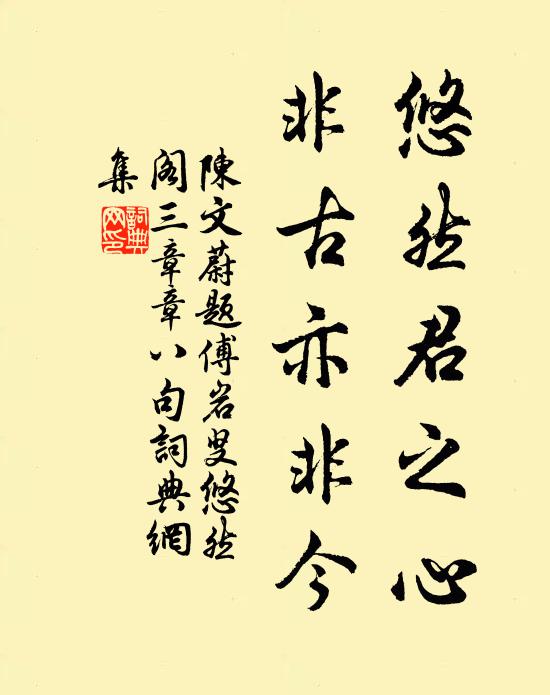 悠然君之心
非古亦非今
陳文蔚題傅岩叟悠然
阁三章章八句詞典網
集
詞典网印